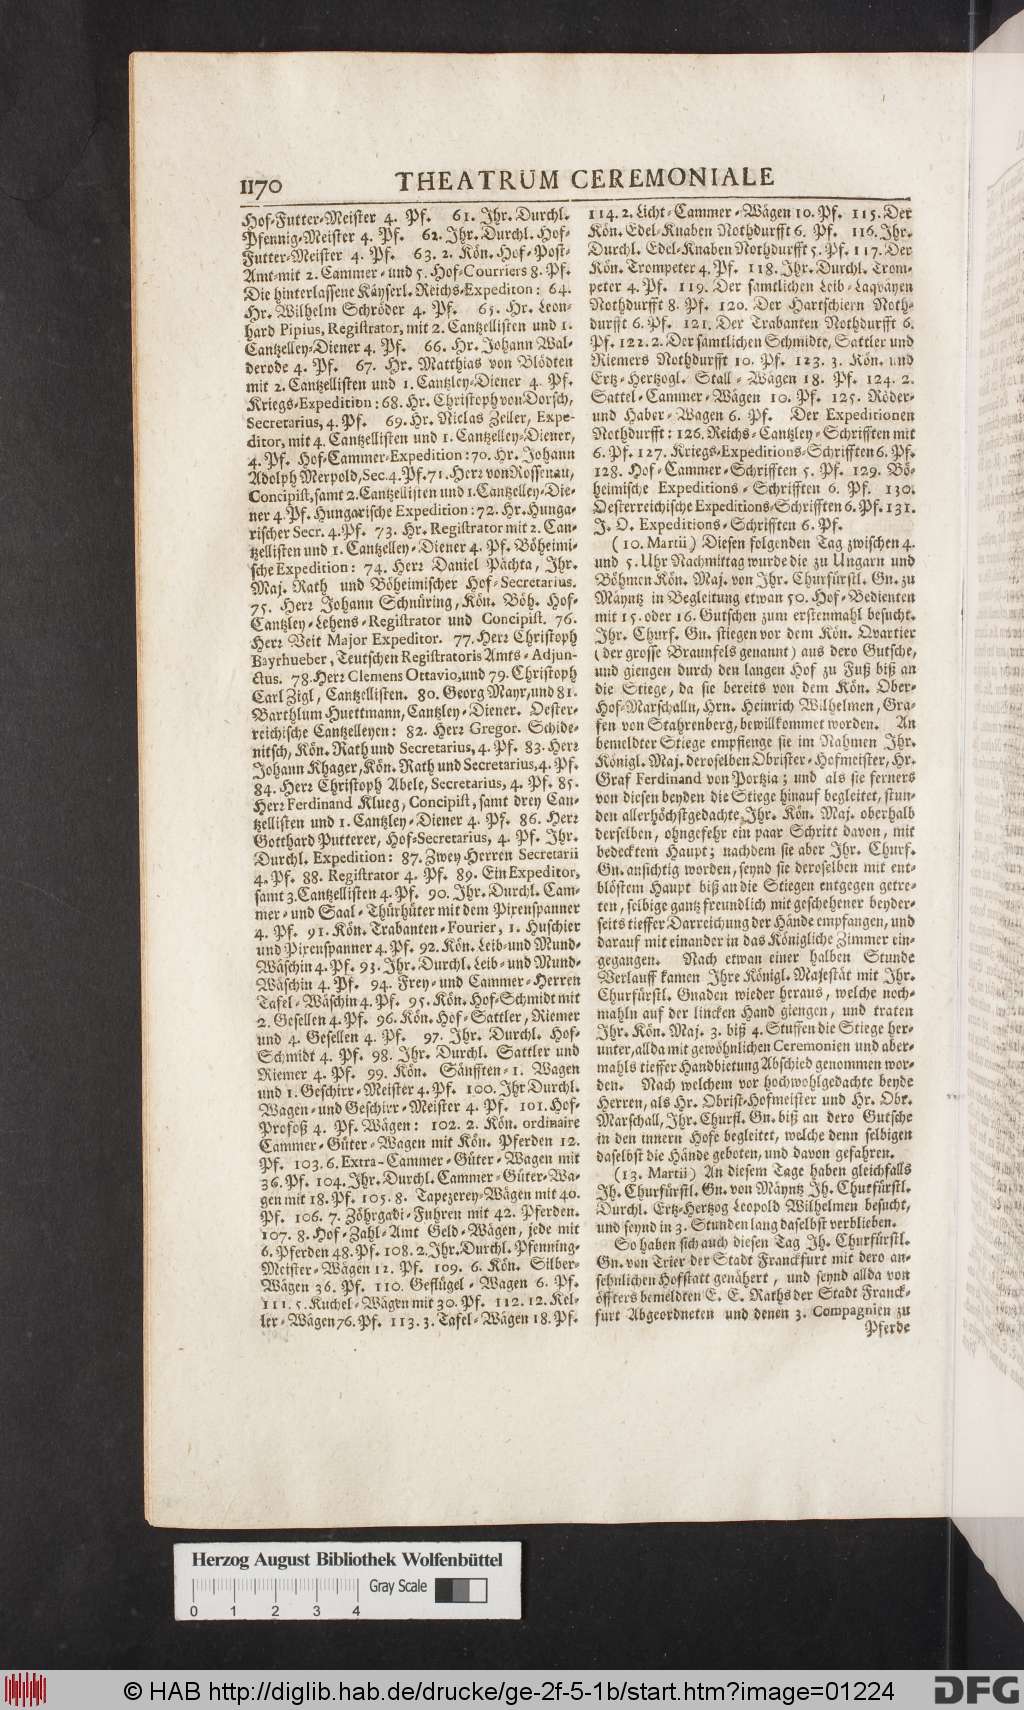 1170 THEATRUM CEREMONIALE
Hof-Futter-Meister 4. Pf. 61. Ihr. Durchl.
Pfennig-Meister 4. Pf. 62. Ihr. Durchl. Hof-
Futter-Meister 4. Pf. 63. 2. Kön. Hof-Post-
Amt-mit 2. Cammer- und 5. Hof-Courriers 8. Pf.
Die hinterlassene Käyserl. Reichs-Expediton: 64.
Hr. Wilhelm Schröder 4. Pf. 65. Hr. Leon-
hard Pipius, Registrator, mit 2. Cantzellisten und 1.
Cantzelley-Diener 4. Pf. 66. Hr. Johann Wal-
derode 4. Pf. 67. Hr. Matthias von Blödten
mit 2. Cantzellisten und 1. Cantzley-Diener 4. Pf.
Kriegs-Expedition: 68. Hr. Christoph von Dorsch,
Secretarius, 4. Pf. 69. Hr. Niclas Zeller, Expe-
ditor, mit 4. Cantzellisten und 1. Cantzelley-Diener,
4. Pf. Hof-Cammer-Expedition: 70. Hr. Johann
Adolph Merpold, Sec. 4. Pf. 71. Herr von Rossenau,
Concipist, samt 2. Cantzellisten und 1. Cantzelley-Die-
ner 4. Pf. Hungarische Expedition: 72. Hr. Hunga-
rischer Secr. 4. Pf. 73. Hr. Registrator mit 2. Can-
tzellisten und 1. Cantzelley-Diener 4. Pf. Böheimi-
sche Expedition: 74. Herr Daniel Pächta, Ihr.
Maj. Rath und Böheimischer Hof-Secretarius.
75. Herr Johann Schnüring, Kön. Böh. Hof-
Cantzley-Lehens-Registrator und Concipist. 76.
Herr Veit Major Expeditor. 77. Herr Christoph
Bayrhueber, Teutschen Registratoris Amts-Adjun-
ctus. 78. Herr Clemens Ottavio, und 79. Christoph
Carl Zigl, Cantzellisten. 80. Georg Mayr, und 81.
Barthlum Huettmann, Cantzley-Diener. Oester-
reichische Cantzelleyen: 82. Herr Gregor. Schide-
nitsch, Kön. Rath und Secretarius, 4. Pf. 83. Herr
Johann Khager, Kön. Rath und Secretarius, 4. Pf.
84. Herr Christoph Abele, Secretarius, 4. Pf. 85.
Herr Ferdinand Klueg, Concipist, samt drey Can-
tzellisten und 1. Cantzley-Diener 4. Pf. 86. Herr
Gotthard Putterer, Hof-Secretarius, 4. Pf. Ihr.
Durchl. Expedition: 87. Zwey Herren Secretarii
4. Pf. 88. Registrator 4. Pf. 89. Ein Expeditor,
samt 3. Cantzellisten 4. Pf. 90. Ihr. Durchl. Cam-
mer- und Saal-Thürhüter mit dem Pixenspanner
4. Pf. 91. Kön. Trabanten-Fourier, 1. Huschier
und Pixenspanner 4. Pf. 92. Kön. Leib- und Mund-
Wäschin 4. Pf. 93. Ihr. Durchl. Leib- und Mund-
Wäschin 4. Pf. 94. Frey- und Cammer-Herren
Tafel-Wäschin 4. Pf. 95. Kön. Hof-Schmidt mit
2. Gesellen 4. Pf. 96. Kön. Hof-Sattler, Riemer
und 4. Gesellen 4. Pf. 97. Ihr. Durchl. Hof-
Schmidt 4. Pf. 98. Ihr. Durchl. Sattler und
Riemer 4. Pf. 99. Kön. Sänfften-1. Wagen
und 1. Geschirr-Meister 4. Pf. 100. Ihr Durchl.
Wagen- und Geschirr-Meister 4. Pf. 101. Hof-
Profoß 4. Pf. Wägen: 102. 2. Kön. ordinaire
Cammer-Güter-Wagen mit Kön. Pferden 12.
Pf. 103. 6. Extra-Cammer-Güter-Wagen mit
36. Pf. 104. Ihr. Durchl. Cammer-Güter-Wa-
gen mit 18. Pf. 105. 8. Tapezerey-Wägen mit 40.
Pf. 106. 7. Zöhrgadi-Fuhren mit 42. Pferden.
107. 8. Hof-Zahl-Amt Geld-Wägen, jede mit
6. Pferden 48. Pf. 108. 2. Ihr. Durchl. Pfenning-
Meister-Wägen 12. Pf. 109. 6. Kön. Silber-
Wägen 36. Pf. 110. Geflügel-Wagen 6. Pf.
111. 5. Kuchel-Wägen mit 30. Pf. 112. 12. Kel-
ler-Wägen 76. Pf. 113. 3. Tafel-Wägen 18. Pf.
114. 2. Licht-Cammer-Wägen 10. Pf. 115. Der
Kön. Edel-Knaben Nothdurfft 6. Pf. 116. Ihr.
Durchl. Edel-Knaben Nothdurfft 5. Pf. 117. Der
Kön. Trompeter 4. Pf. 118. Ihr. Durchl. Trom-
peter 4. Pf. 119. Der samtlichen Leib-Laqvayen
Nothdurfft 8. Pf. 120. Der Hartschiern Noth-
durfft 6. Pf. 121. Der Trabanten Nothdurfft 6.
Pf. 122. 2. Der samtlichen Schmidte, Sattler und
Riemers Nothdurfft 10. Pf. 123. 3. Kön. und
Ertz-Hertzogl. Stall-Wägen 18. Pf. 124. 2.
Sattel-Cammer-Wägen 10. Pf. 125. Röder-
und Haber-Wagen 6. Pf. Der Expeditionen
Nothdurfft: 126. Reichs-Cantzley-Schrifften mit
6. Pf. 127. Kriegs-Expeditions-Schrifften 6. Pf.
128. Hof-Cammer-Schrifften 5. Pf. 129. Bö-
heimische Expeditions-Schrifften 6. Pf. 130.
Oesterreichische Expeditions-Schrifften 6. Pf. 131.
J. O. Expeditions-Schrifften 6. Pf.
(10. Martii) Diesen folgenden Tag zwischen 4.
und 5. Uhr Nachmittag wurde die zu Ungarn und
Böhmen Kön. Maj. von Ihr. Churfürstl. Gn. zu
Mayntz in Begleitung etwan 50. Hof-Bedienten
mit 15. oder 16. Gutschen zum erstenmahl besucht.
Ihr. Churf. Gn. stiegen vor dem Kön. Qvartier
(der grosse Braunfels genannt) aus dero Gutsche,
und giengen durch den langen Hof zu Fuß biß an
die Stiege, da sie bereits von dem Kön. Ober-
Hof-Marschalln, Hrn. Heinrich Wilhelmen, Gra-
fen von Stahrenberg, bewillkommet worden. An
bemeldter Stiege empfienge sie im Nahmen Ihr.
Königl. Maj. deroselben Obrister-Hofmeister, Hr.
Graf Ferdinand von Portzia; und als sie ferners
von diesen beyden die Stiege hinauf begleitet, stun-
den allerhöchstgedachte Ihr. Kön. Maj. oberhalb
derselben, ohngefehr ein paar Schritt davon, mit
bedecktem Haupt; nachdem sie aber Ihr. Churf.
Gn. ansichtig worden, seynd sie deroselben mit ent-
blöstem Haupt biß an die Stiegen entgegen getre-
ten, selbige gantz freundlich mit geschehener beyder-
seits tieffer Darreichung der Hände empfangen, und
darauf mit einander in das Königliche Zimmer ein-
gegangen. Nach etwan einer halben Stunde
Verlauff kamen Ihre Königl. Majestät mit Ihr.
Churfürstl. Gnaden wieder heraus, welche noch-
mahln auf der lincken Hand giengen, und traten
Ihr. Kön. Maj. 3. biß 4. Stuffen die Stiege her-
unter, allda mit gewöhnlichen Ceremonien und aber-
mahls tieffer Handbietung Abschied genommen wor-
den. Nach welchem vor hochwohlgedachte beyde
Herren, als Hr. Obrist-Hofmeister und Hr. Obr.
Marschall, Ihr. Churfl. Gn. biß an dero Gutsche
in den innern Hofe begleitet, welche denn selbigen
daselbst die Hände geboten, und davon gefahren.
(13. Martii) An diesem Tage haben gleichfalls
Ih. Churfürstl. Gn. von Mäyntz Ih. Churfürstl.
Durchl. Ertz-Hertzog Leopold Wilhelmen besucht,
und seynd in 3. Stunden lang daselbst verblieben.
So haben sich auch diesen Tag Ih. Churfürstl.
Gn. von Trier der Stadt Franckfurt mit dero an-
sehnlichen Hofstatt genähert, und seynd allda von
öffters bemeldten E. E. Raths der Stadt Franck-
furt Abgeordneten und denen 3. Compagnien zu
Pferde
Herzog August Bibliothek Wolfenbüttel
Gray Scale
0 1 2 3 4
© HAB http://diglib.hab.de/drucke/ge-2f-5-1b/start.htm?image=01224
DFG